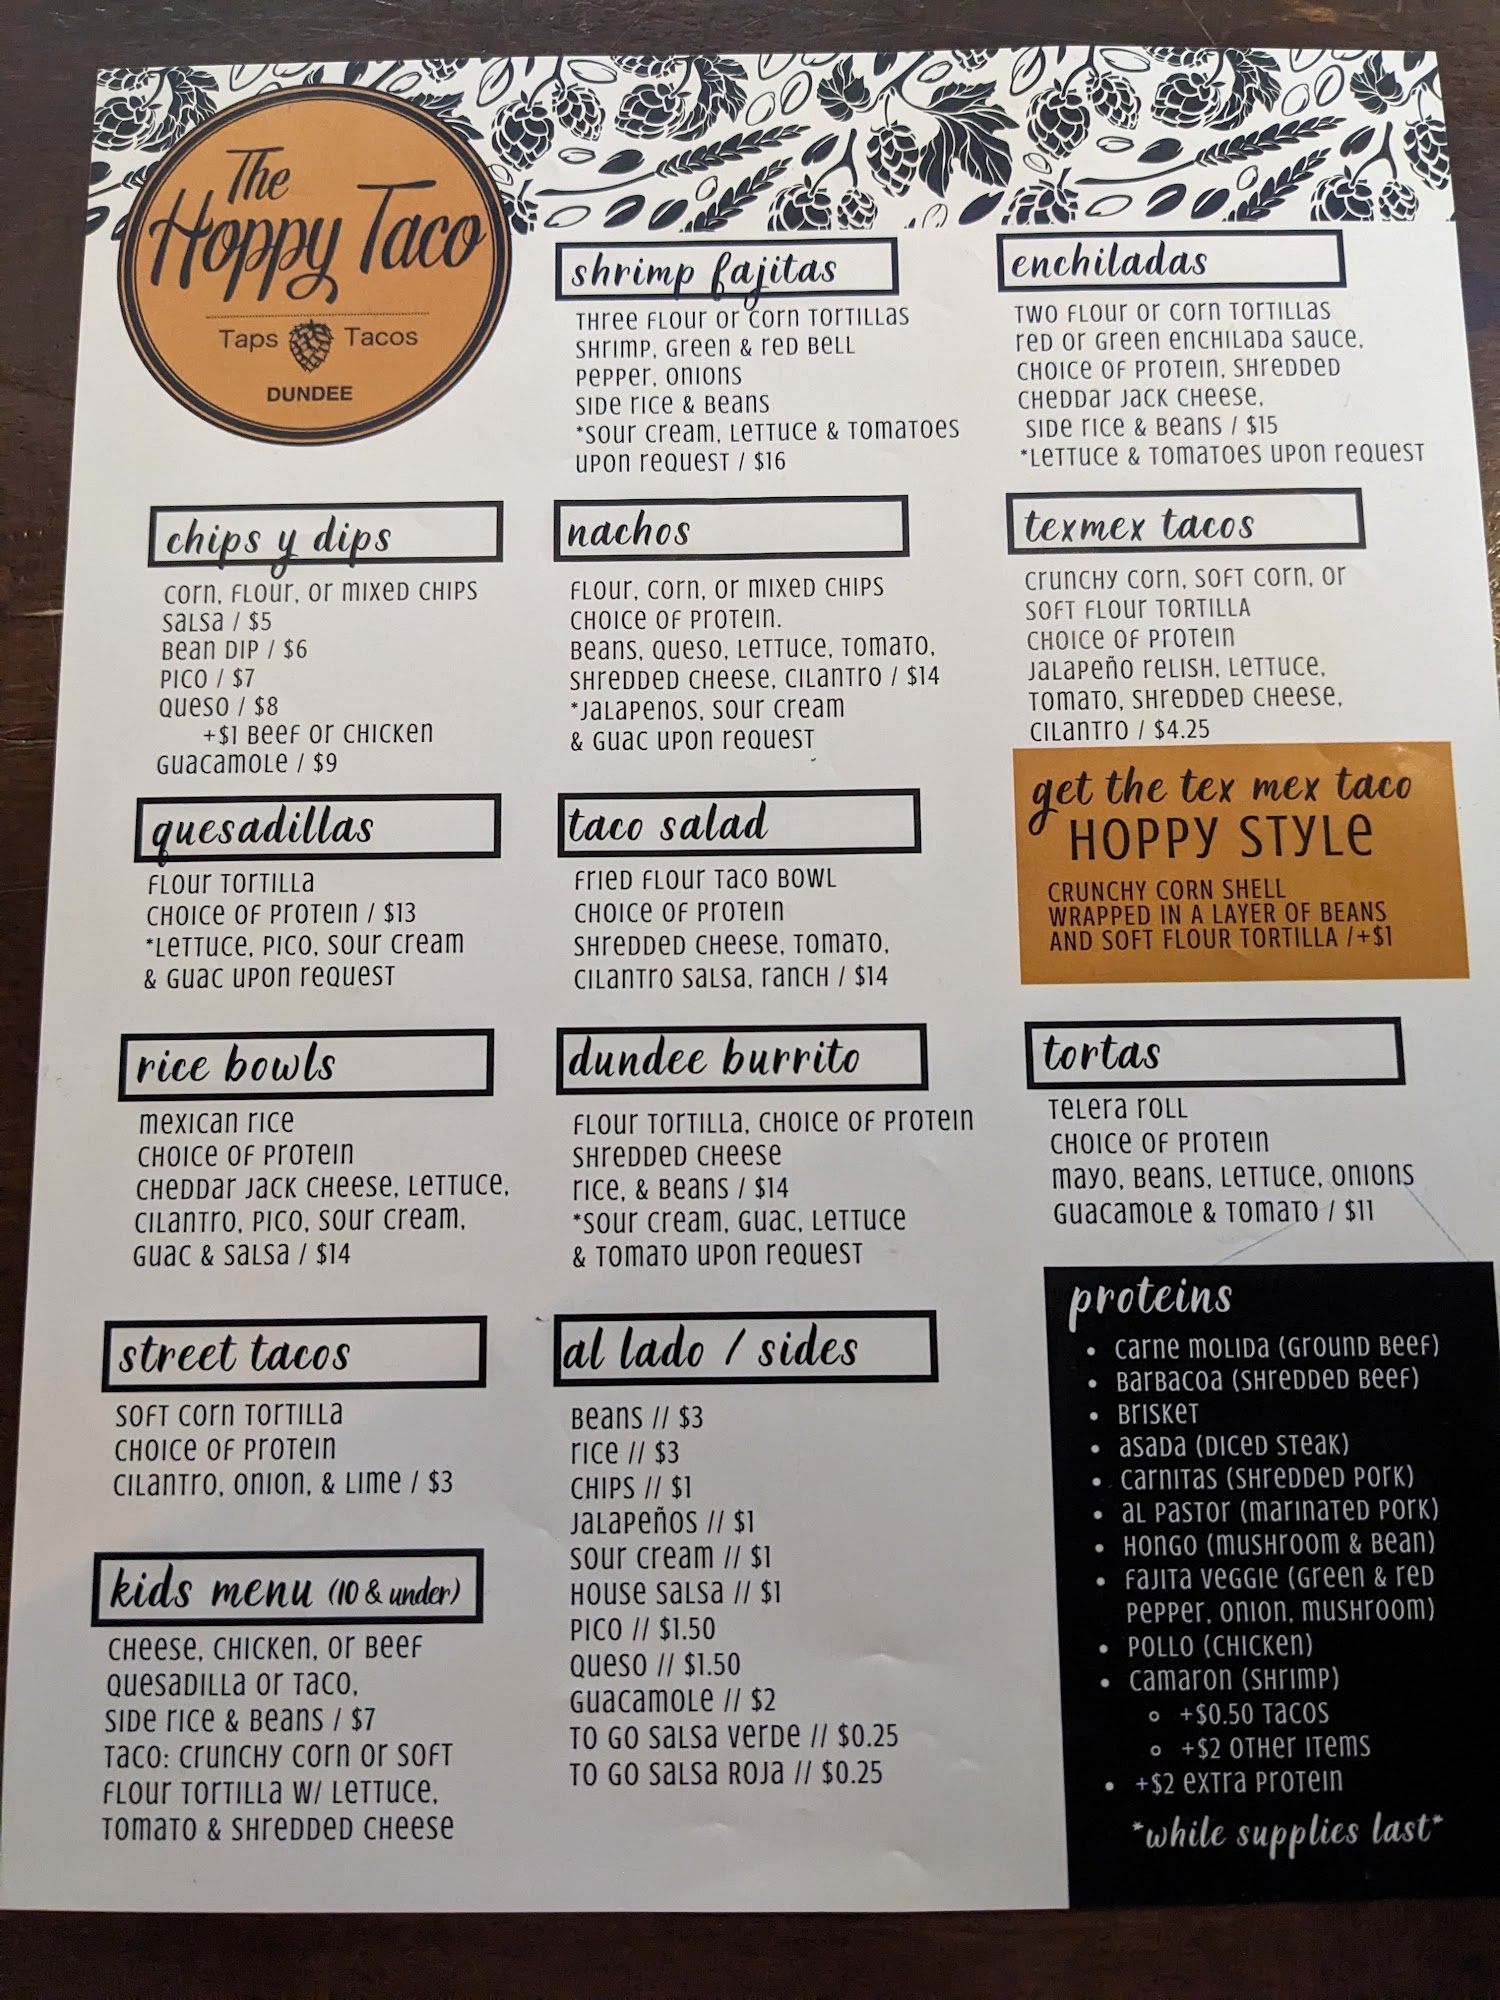 The
Hoppy Taco
Taps Tacos
DUNDEE
chips y dips
Corn, Flour, or Mixed Chips
Salsa / $5
Bean Dip / $6
Pico / $7
Queso / $8
+$1 Beef or Chicken
Guacamole / $9
quesadillas
Flour Tortilla
Choice of Protein / $13
*Lettuce, Pico, Sour Cream
& Guac Upon Request
rice bowls
Mexican Rice
Choice of Protein
Cheddar Jack Cheese, Lettuce,
Cilantro, Pico, Sour Cream,
Guac & Salsa / $14
street tacos
Soft Corn Tortilla
Choice of Protein
Cilantro, Onion, & Lime / $3
kids menu (10 & under)
Cheese, Chicken, or Beef
Quesadilla or Taco,
Side Rice & Beans / $7
Taco: Crunchy Corn or Soft
Flour Tortilla w/ Lettuce,
Tomato & Shredded Cheese
shrimp fajitas
Three Flour or Corn Tortillas
Shrimp, Green & Red Bell
Pepper, Onions
Side Rice & Beans
*Sour Cream, Lettuce & Tomatoes
Upon Request / $16
nachos
Flour, Corn, or Mixed Chips
Choice of Protein.
Beans, Queso, Lettuce, Tomato,
Shredded Cheese, Cilantro / $14
*Jalapenos, Sour Cream
& Guac Upon Request
taco salad
Fried Flour Taco Bowl
Choice of Protein
Shredded Cheese, Tomato,
Cilantro Salsa, Ranch / $14
dundee burrito
Flour Tortilla, Choice of Protein
Shredded Cheese
Rice, & Beans / $14
*Sour Cream, Guac, Lettuce
& Tomato Upon Request
al lado / sides
Beans // $3
Rice // $3
Chips // $1
Jalapeños // $1
Sour Cream // $1
House Salsa // $1
Pico // $1.50
Queso // $1.50
Guacamole // $2
To Go Salsa Verde // $0.25
To Go Salsa Roja // $0.25
enchiladas
Two Flour or Corn Tortillas
Red or Green Enchilada Sauce,
Choice of Protein, Shredded
Cheddar Jack Cheese,
Side Rice & Beans / $15
*Lettuce & Tomatoes Upon Request
texmex tacos
Crunchy Corn, Soft Corn, or
Soft Flour Tortilla
Choice of Protein
Jalapeño Relish, Lettuce,
Tomato, Shredded Cheese,
Cilantro / $4.25
get the tex mex taco
HOPPY STYLE
CRUNCHY CORN SHELL
WRAPPED IN A LAYER OF BEANS
AND SOFT FLOUR TORTILLA /+$1
tortas
Telera Roll
Choice of Protein
Mayo, Beans, Lettuce, Onions
Guacamole & Tomato / $11
proteins
• Carne Molida (Ground Beef)
• Barbacoa (Shredded Beef)
• Brisket
• Asada (Diced Steak)
• Carnitas (Shredded Pork)
• Al Pastor (Marinated Pork)
• Hongo (Mushroom & Bean)
• Fajita Veggie (Green & Red
Pepper, Onion, Mushroom)
• Pollo (Chicken)
• Camaron (Shrimp)
◦ +$0.50 Tacos
◦ +$2 Other Items
• +$2 Extra Protein
*while supplies last*